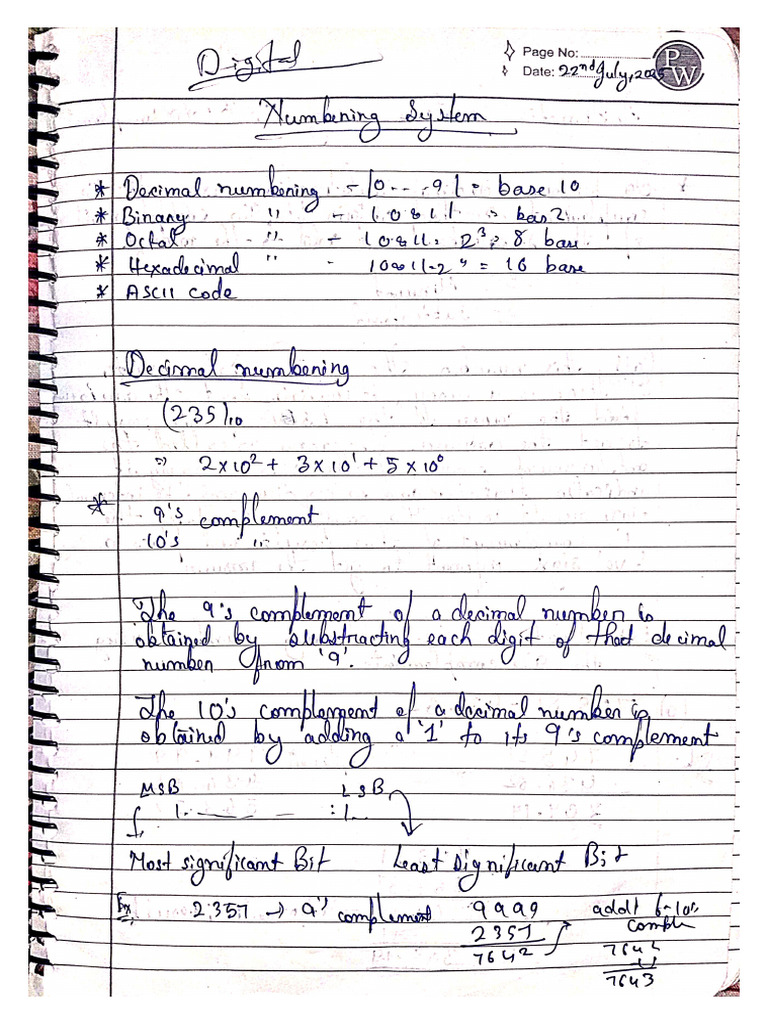 Digital
Page No:
Date: 22nd July, 2025
PW
Numbering System
* Decimal numbering - |0 -- . 9| = base 10
* Binary " - | 0 & 1 |
* Octal " - | 0 & 1 | = 2³ = 8 base
* Hexadecimal " - | 0 & 1 | - 2⁴ = 16 base
* ASCII code
Decimal numbering
(235)₁₀
⇒ 2 × 10² + 3 × 10¹ + 5 × 10⁰
* 9's complement
10's "
The 9's complement of a decimal number is
obtained by substracting each digit of that decimal
number from '9'.
The 10's complement of a decimal number is
obtained by adding a '1' to its 9's complement
MSB LSB
Most significant Bit Least Significant Bit
Ex 2357 → 9's complement 9999
2357
7642
add 1 10's
7642
1
7643